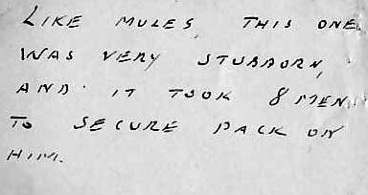 LIKE MULES, THIS ONE
WAS VERY STUBBORN,
AND IT TOOK 8 MEN
TO SECURE PACK ON
HIM.